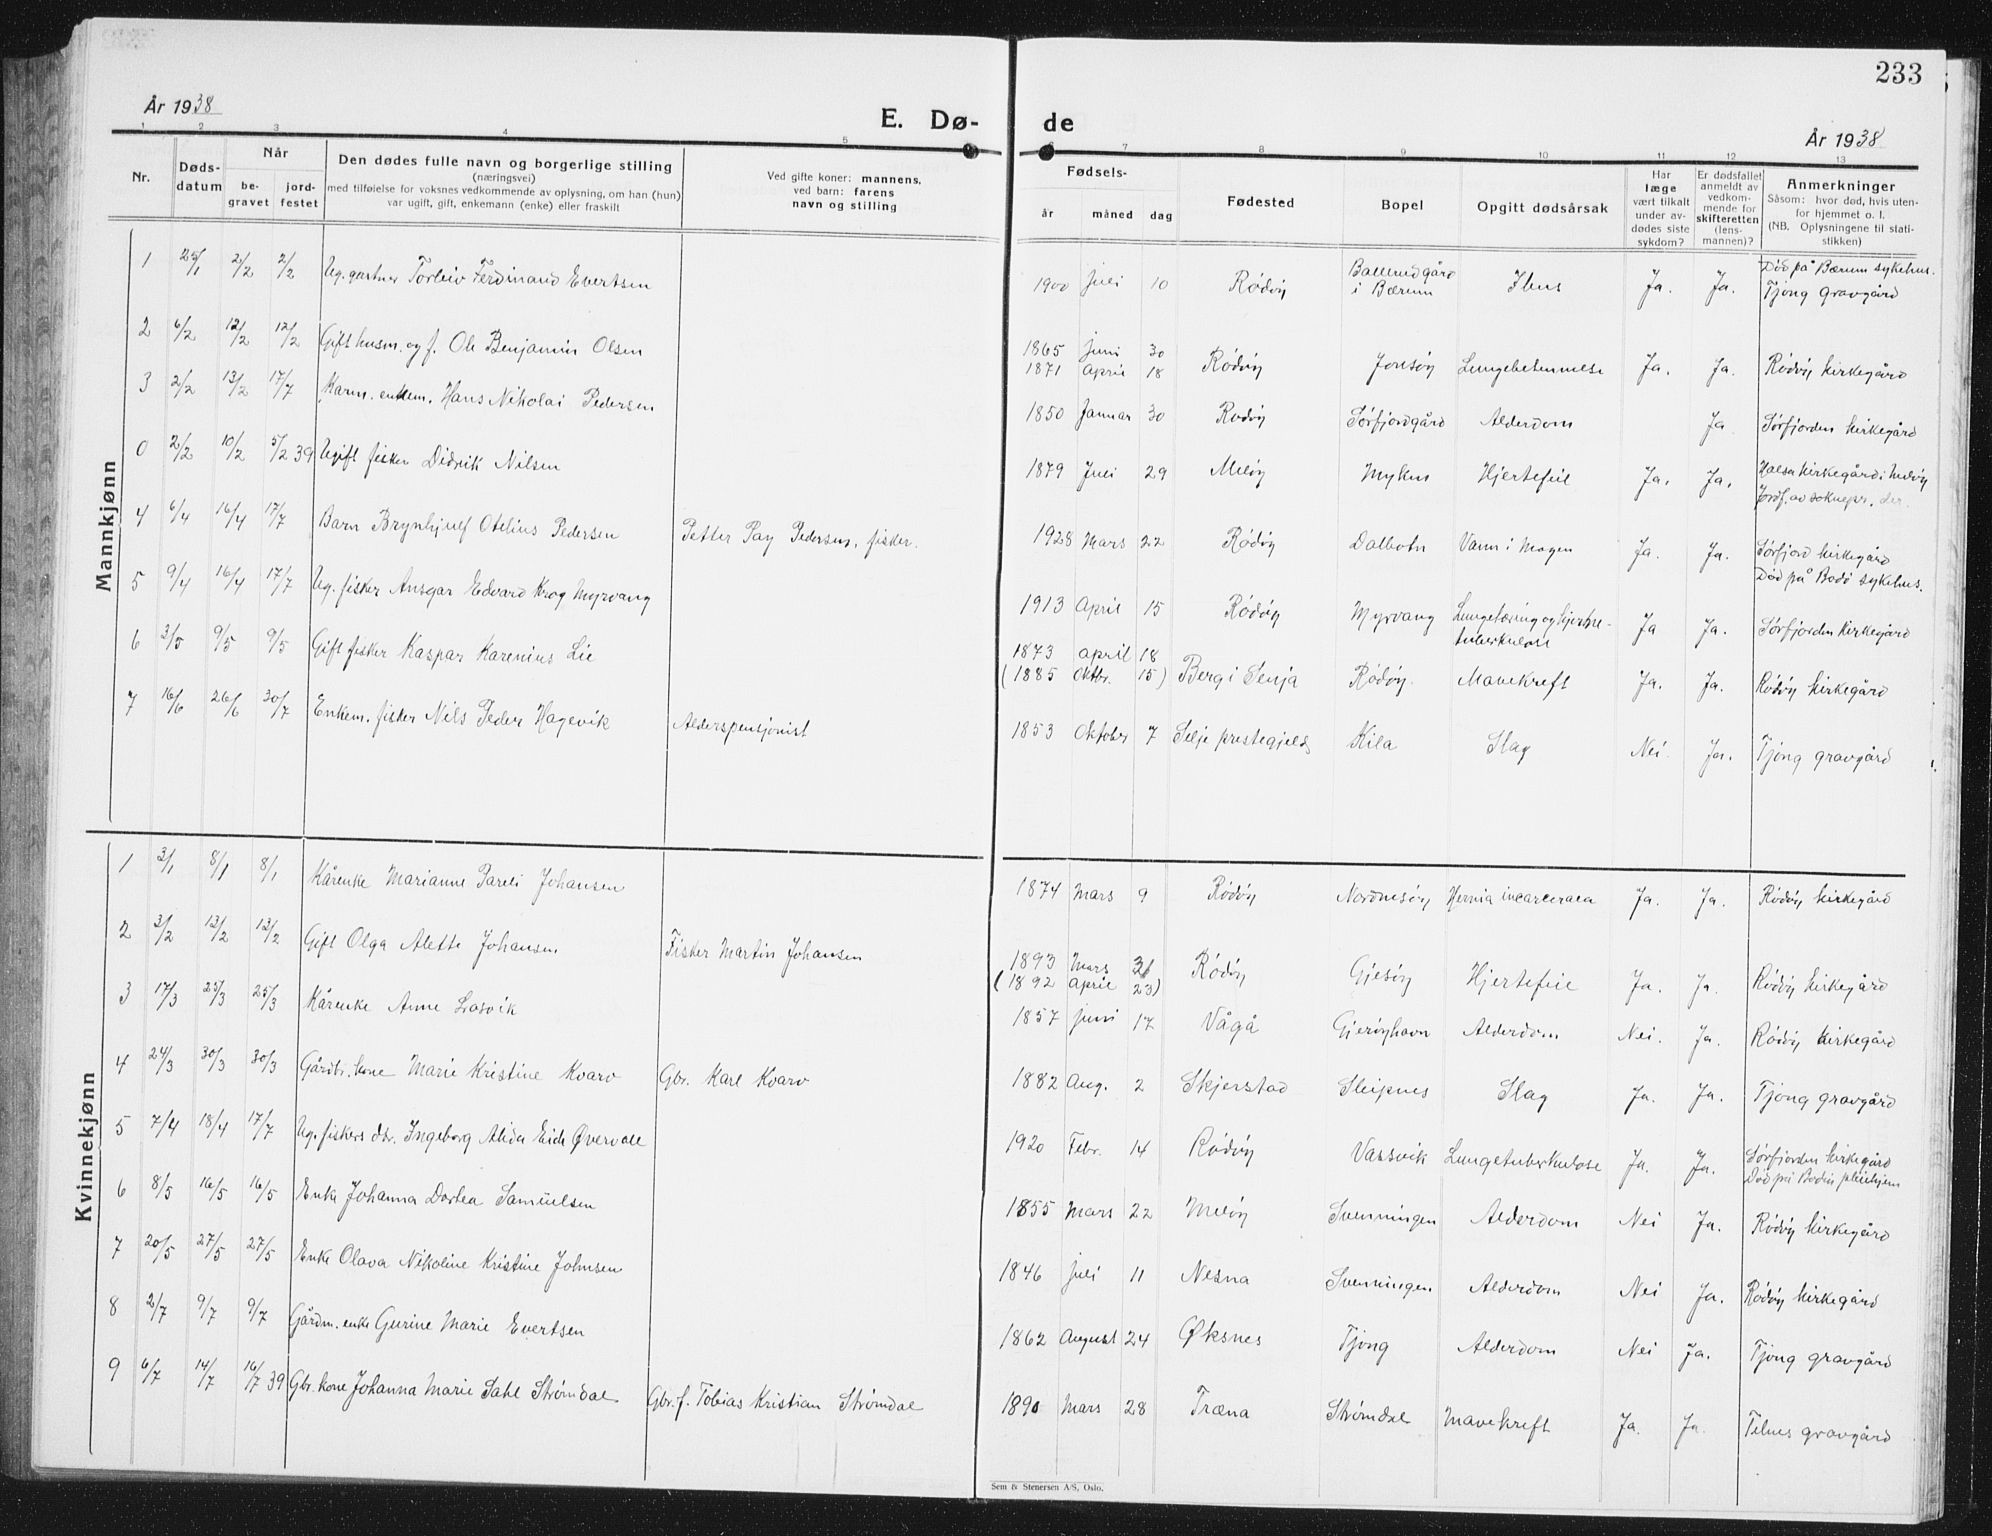 233
År 1938
E. Dø-
de
År 1938
1 2 3 4 5 6 7 8 9 10 11 12 13
Nr.
Døds-
datum
Når
be-
gravet
jord-
festet
Den dødes fulle navn og borgerlige stilling
(næringsvei)
med tilføielse for voksnes vedkommende av oplysning, om han (hun)
var ugift, gift, enkemann (enke) eller fraskilt
Ved gifte koner: mannens,
ved barn: farens
navn og stilling
Fødsels-
år måned dag
Fødested
Bopel
Opgitt dødsårsak
Har
læge
vært tilkalt
under av-
dødes siste
sykdom?
Er dødsfallet
anmeldt av
vedkom-
mende for
skifteretten
(lens-
mannen)?
Anmerkninger
Såsom: hvor død, hvis uten-
for hjemmet o. l.
(NB. Oplysningene til stati-
stikken)
Mannkjønn
1 25/1 2/2 2/2 Ug. gartner Torleiv Ferdinand Evertsen 1900 Juli 10 Rødøy Ballerud gård i Bærum Ileus Ja. Ja. Død på Bærum sykehus. Tjong gravgård
2 6/2 12/2 12/2 Gift husm. og f. Ole Benjamin Olsen 1865 juni 30 1871 April 18 Rødøy Jonsøy Lungebetennelse Ja. Ja. Rødøy kirkegård
3 2/2 13/2 17/7 Kårm. enkem. Hans Nikolai Pedersen 1850 Januar 30 Rødøy Sørfjordgård Alderdom Ja Sørfjorden kirkegård
0 2/2 10/2 5/2 39 Ugift fisker Didrik Nilsen 1879 Juli 29 Meløy Myken Hjertefeil Ja. Ja. Halsa kirkegård i Meløy Jordf. av soknepr. der.
4 6/4 16/4 17/7 Barn Brynhjulf Otelius Pedersen Petter Pay Pedersen, fisker. 1928 Mars 22 Rødøy Dalbotn Vann i Magen Ja. Ja. Sørfjord kirkegård
5 9/4 16/4 17/7 Ug. fisker Ansgar Edvard Krog Myrvang 1913 April 15 Rødøy Myrvang Lungetæring og hjerne-tuberkulose Ja Ja. Død på Bodø sykehus. Sørfjorden kirkegård
6 3/5 9/5 9/5 Gift fisker Kaspar Karenius Lie 1873 april 18 (1885 Oktbr. 15) Berg i Senja Rødøy. Mavekreft Ja. Ja. Rødøy kirkegård
7 16/6 26/6 30/7 Enkem. fisker Nils Peder Hagevik Alderspensjonist 1853 Oktober 7 Selje prestegjeld Kila Slag Nei. Ja. Tjong gravgård
Kvinnekjønn
1 3/1 8/1 8/1 Kårenke Marianne Pareli Johansen 1874 Mars 9 Rødøy Nordnesøy Hernia incarcerata Ja. Ja. Rødøy kirkegård
2 3/2 13/2 13/2 Gift Olga Alette Johansen Fisker Martin Johansen 1893 Mars 31 (1892 April 23) Rødøy Gjesøy Hjertefeil Ja. Ja. Rødøy kirkegård
3 17/3 25/3 25/3 Kårenke Anne Lasvik 1857 juni 17 Vågå Gjerøyhavn Alderdom Nei. Ja. Rødøy kirkegård
4 24/3 30/3 30/3 Gårdbr. kone Marie Kristine Kvarv Gbr. Karl Kvarv 1882 Aug. 2 Skjerstad Sleipnes Slag Ja. Ja. Tjong gravgård
5 7/4 18/4 17/7 Ug. fiskers dtr. Ingeborg Alida Eide Øvervall 1920 Febr. 14 Rødøy Vassvik Lungetuberkulose Ja. Ja. Sørfjorden kirkegård Død på Bodin pleiehjem
6 8/5 16/5 16/5 Enke Johanna Dorthea Samuelsen 1855 Mars 22 Meløy Svenningen Alderdom Nei Ja. Rødøy kirkegård
7 20/5 27/5 27/5 Enke Olava Nikoline Kristine Johnsen 1846 juli 11 Nesna Svenningen Alderdom Nei Ja. Rødøy kirkegård
8 2/7 9/7 9/7 Gårdm. enke Gurine Marie Evertsen 1862 August 24 Øksnes Tjong Alderdom Nei Ja. Tjong gravgård
9 6/7 14/7 16/7 39 Gbr. kone Johanna Marie Dahl Strømdal Gbr. f. Tobias Kristian Strømdal 1890 Mars 28 Træna Strømdal Mavekreft Ja. Ja. Telnes gravgård
Sem & Stenersen A/S, Oslo.